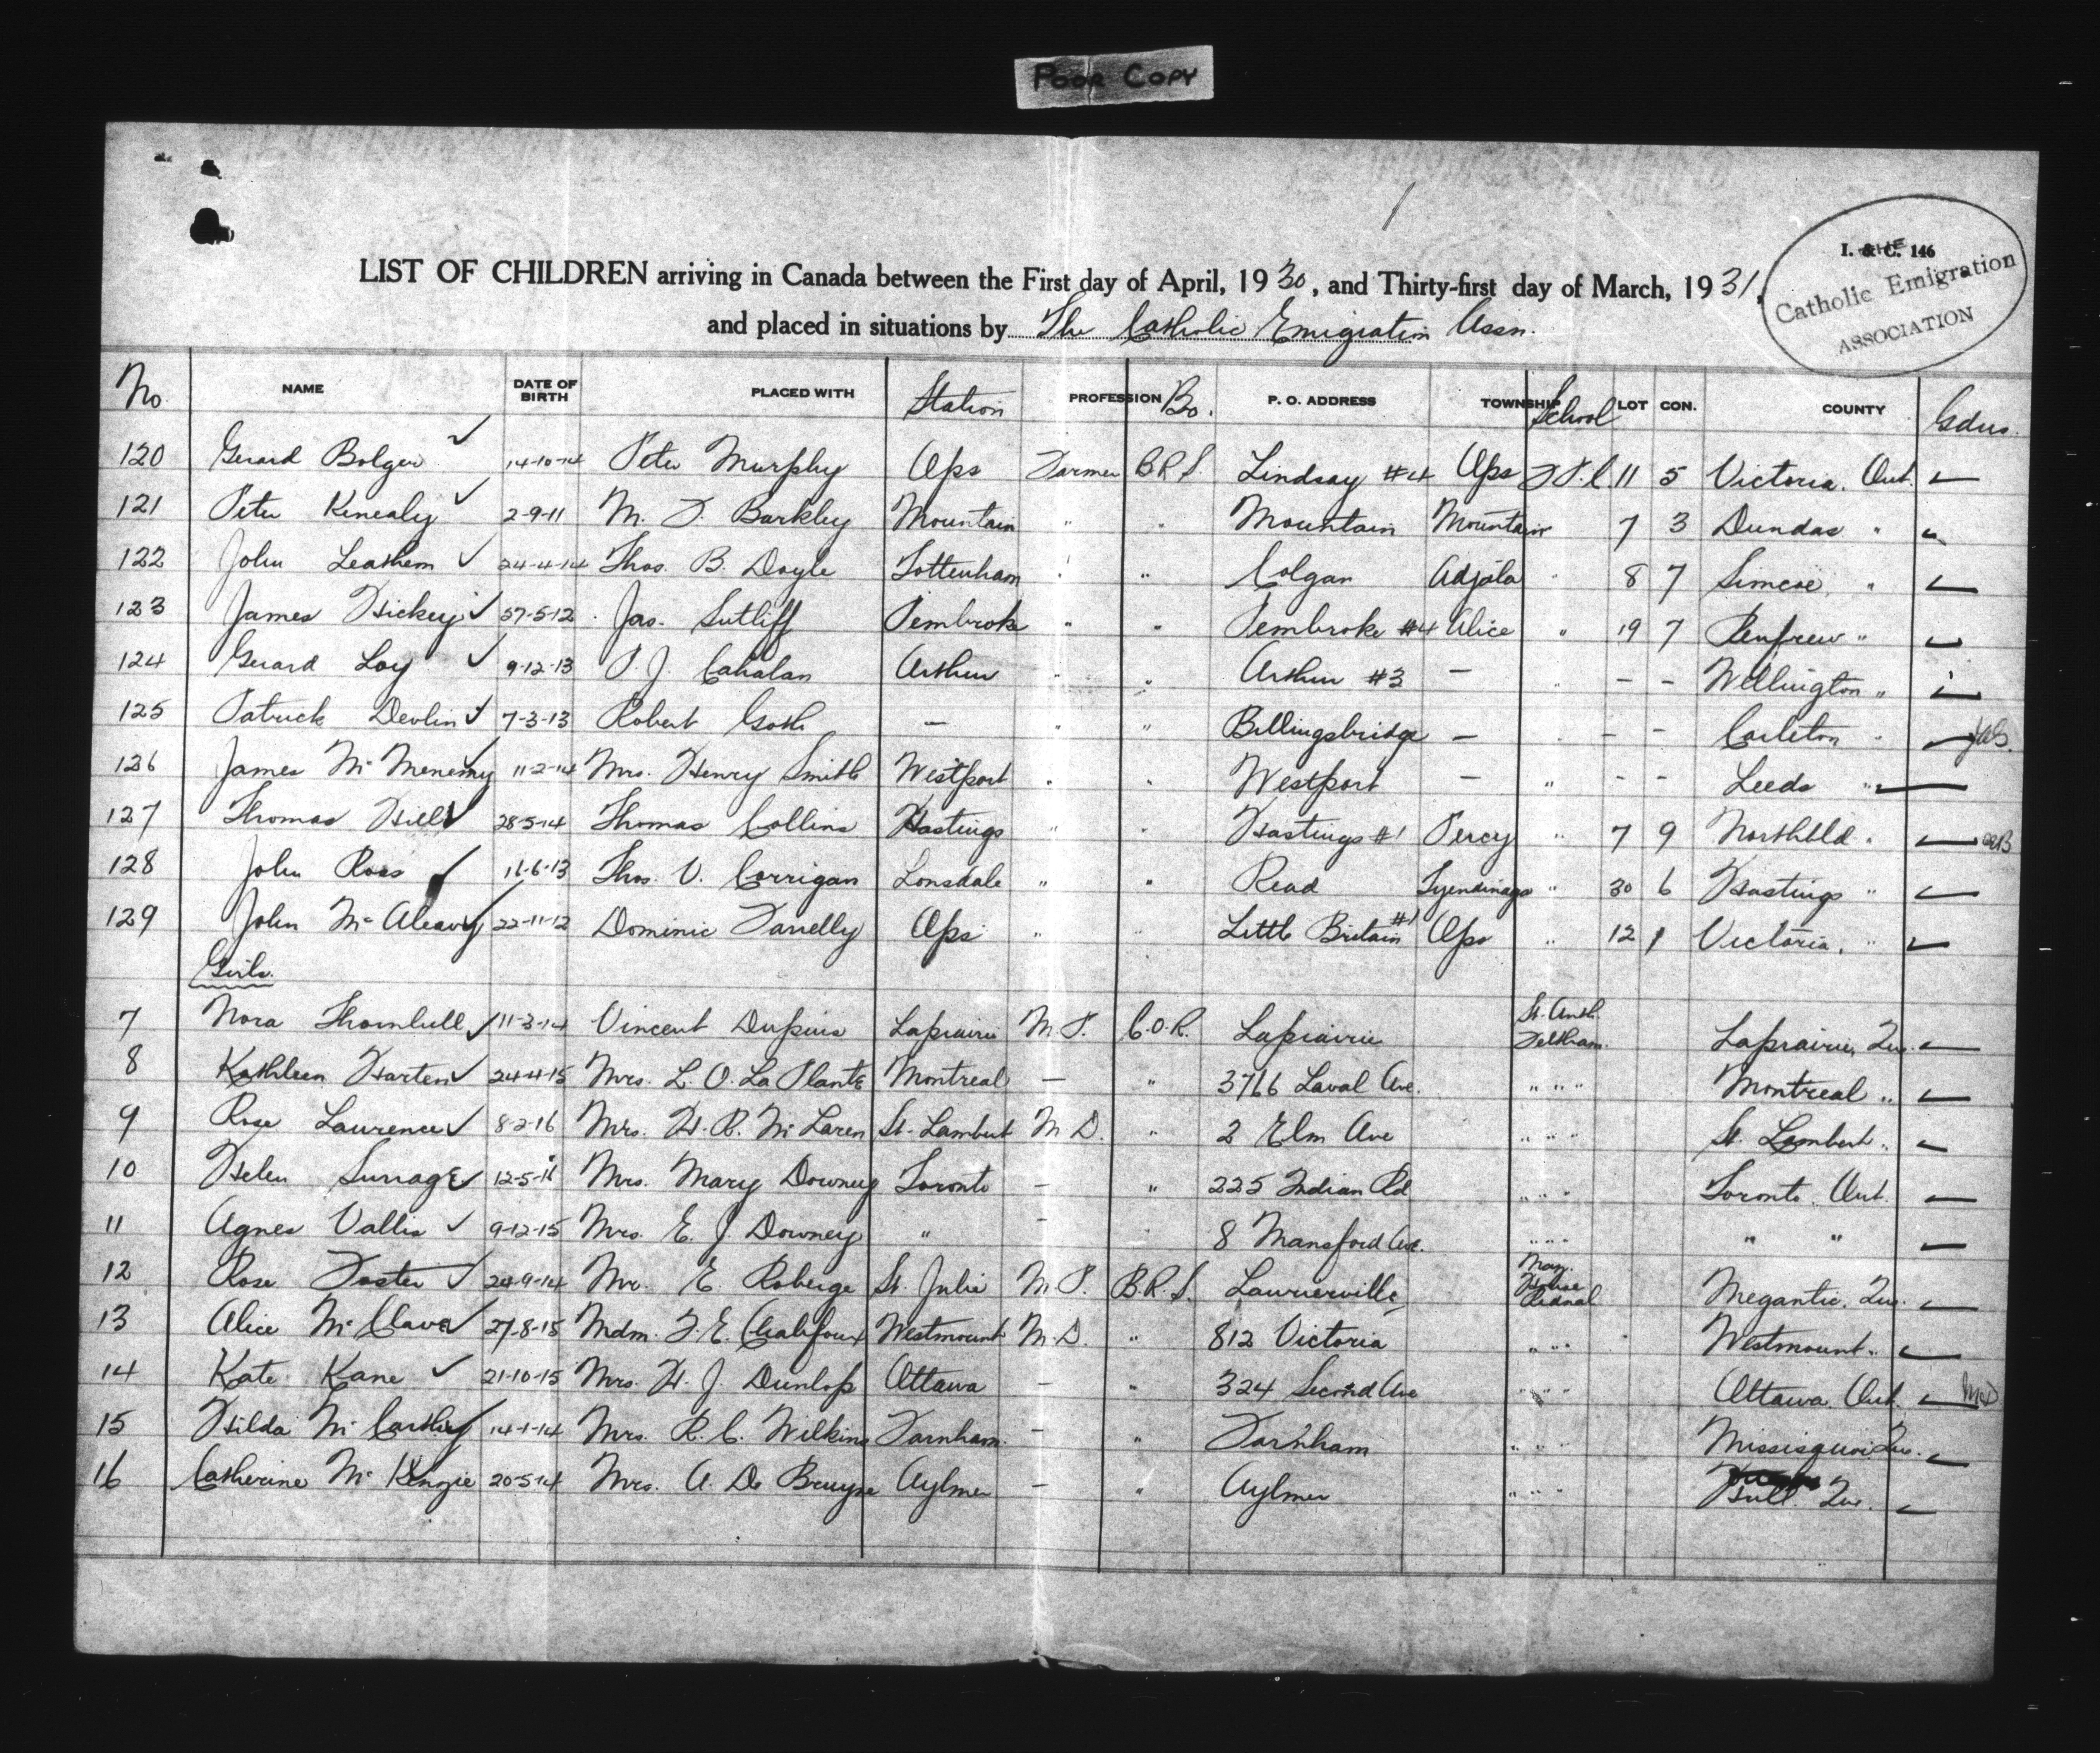 POOR COPY
I. & C. 146
THE Catholic Emigration ASSOCIATION
LIST OF CHILDREN arriving in Canada between the First day of April, 1930, and Thirty-first day of March, 1931,
and placed in situations by The Catholic Emigration Assn.
No. NAME DATE OF BIRTH PLACED WITH Station PROFESSION Bo. P. O. ADDRESS TOWNSHIP School LOT CON. COUNTY Gdns.
120 Gerard Bolger ✓ 14-10-14 Peter Murphy Ops Farmer B.R.S. Lindsay #4 Ops 11 5 Victoria. Ont.
121 Peter Kenealy ✓ 2-9-11 M. F. Barkley Mountain " " Mountain Mountain 7 3 Dundas "
122 John Leathem ✓ 24-4-14 Thos. B. Doyle Tottenham " " Colgan Adjala " 8 7 Simcoe "
123 James Hickey ✓ 27-5-12 Jas. Sutliff Pembroke " " Pembroke #4 Alice " 19 7 Renfrew "
124 Gerard Loy ✓ 9-12-13 P. J. Cahalan Arthur " " Arthur #3 — " — — Wellington "
125 Patrick Devlin ✓ 7-3-13 Robert Goth — " " Billingsbridge — " — — Carleton "
126 James McMenemy ✓ 11-2-14 Mrs. Henry Smith Westport " " Westport — " — — Leeds "
127 Thomas Hill ✓ 28-5-14 Thomas Collins Hastings " " Hastings #1 Percy " 7 9 Northbld. "
128 John Ross ✓ 11-6-13 Thos. V. Corrigan Lonsdale " " Read Tyendinaga " 30 6 Hastings "
129 John McAleavy ✓ 22-11-12 Dominic Farrelly Ops " " Little Britain #1 Ops " 12 1 Victoria. "
Girls.
7 Nora Thornhill ✓ 11-3-14 Vincent Dupuis Laprairie M.P. C.O.R. Laprairie St. Anth. Feltham. Laprairie, Que.
8 Kathleen Harten ✓ 24-4-15 Mrs. L. O. La Plante Montreal — " 3766 Laval Ave. " " " Montreal "
9 Rose Lawrence ✓ 8-2-16 Mrs. H. R. McLaren St. Lambert M.D. " 2 Elm Ave " " " St. Lambert "
10 Helen Surrage ✓ 12-5-16 Mrs. Mary Downey Toronto — " 225 Indian Rd " " " Toronto. Ont.
11 Agnes Vallis ✓ 9-12-15 Mrs. E. J. Downey " — " 8 Mansford Ave. " " " " "
12 Rose Foster ✓ 24-9-14 Mr. E. Roberge St. Julie M.P. B.R.S. Laurierville May. House Rednal Megantic. Que.
13 Alice McClava ✓ 27-8-15 Mdm. F. E. Chalifoux Westmount M.D. " 812 Victoria " " " Westmount "
14 Kate Kane ✓ 21-10-15 Mrs. H. J. Dunlop Ottawa — " 324 Second Ave " " " Ottawa. Ont.
15 Hilda McCarthy ✓ 14-1-14 Mrs. R. C. Wilkins Farnham. — " Farnham " " " Missisquoi Que.
16 Catherine McKenzie 20-5-14 Mrs. A. De Bruyne Aylmer — " Aylmer " " " Hull. Que.